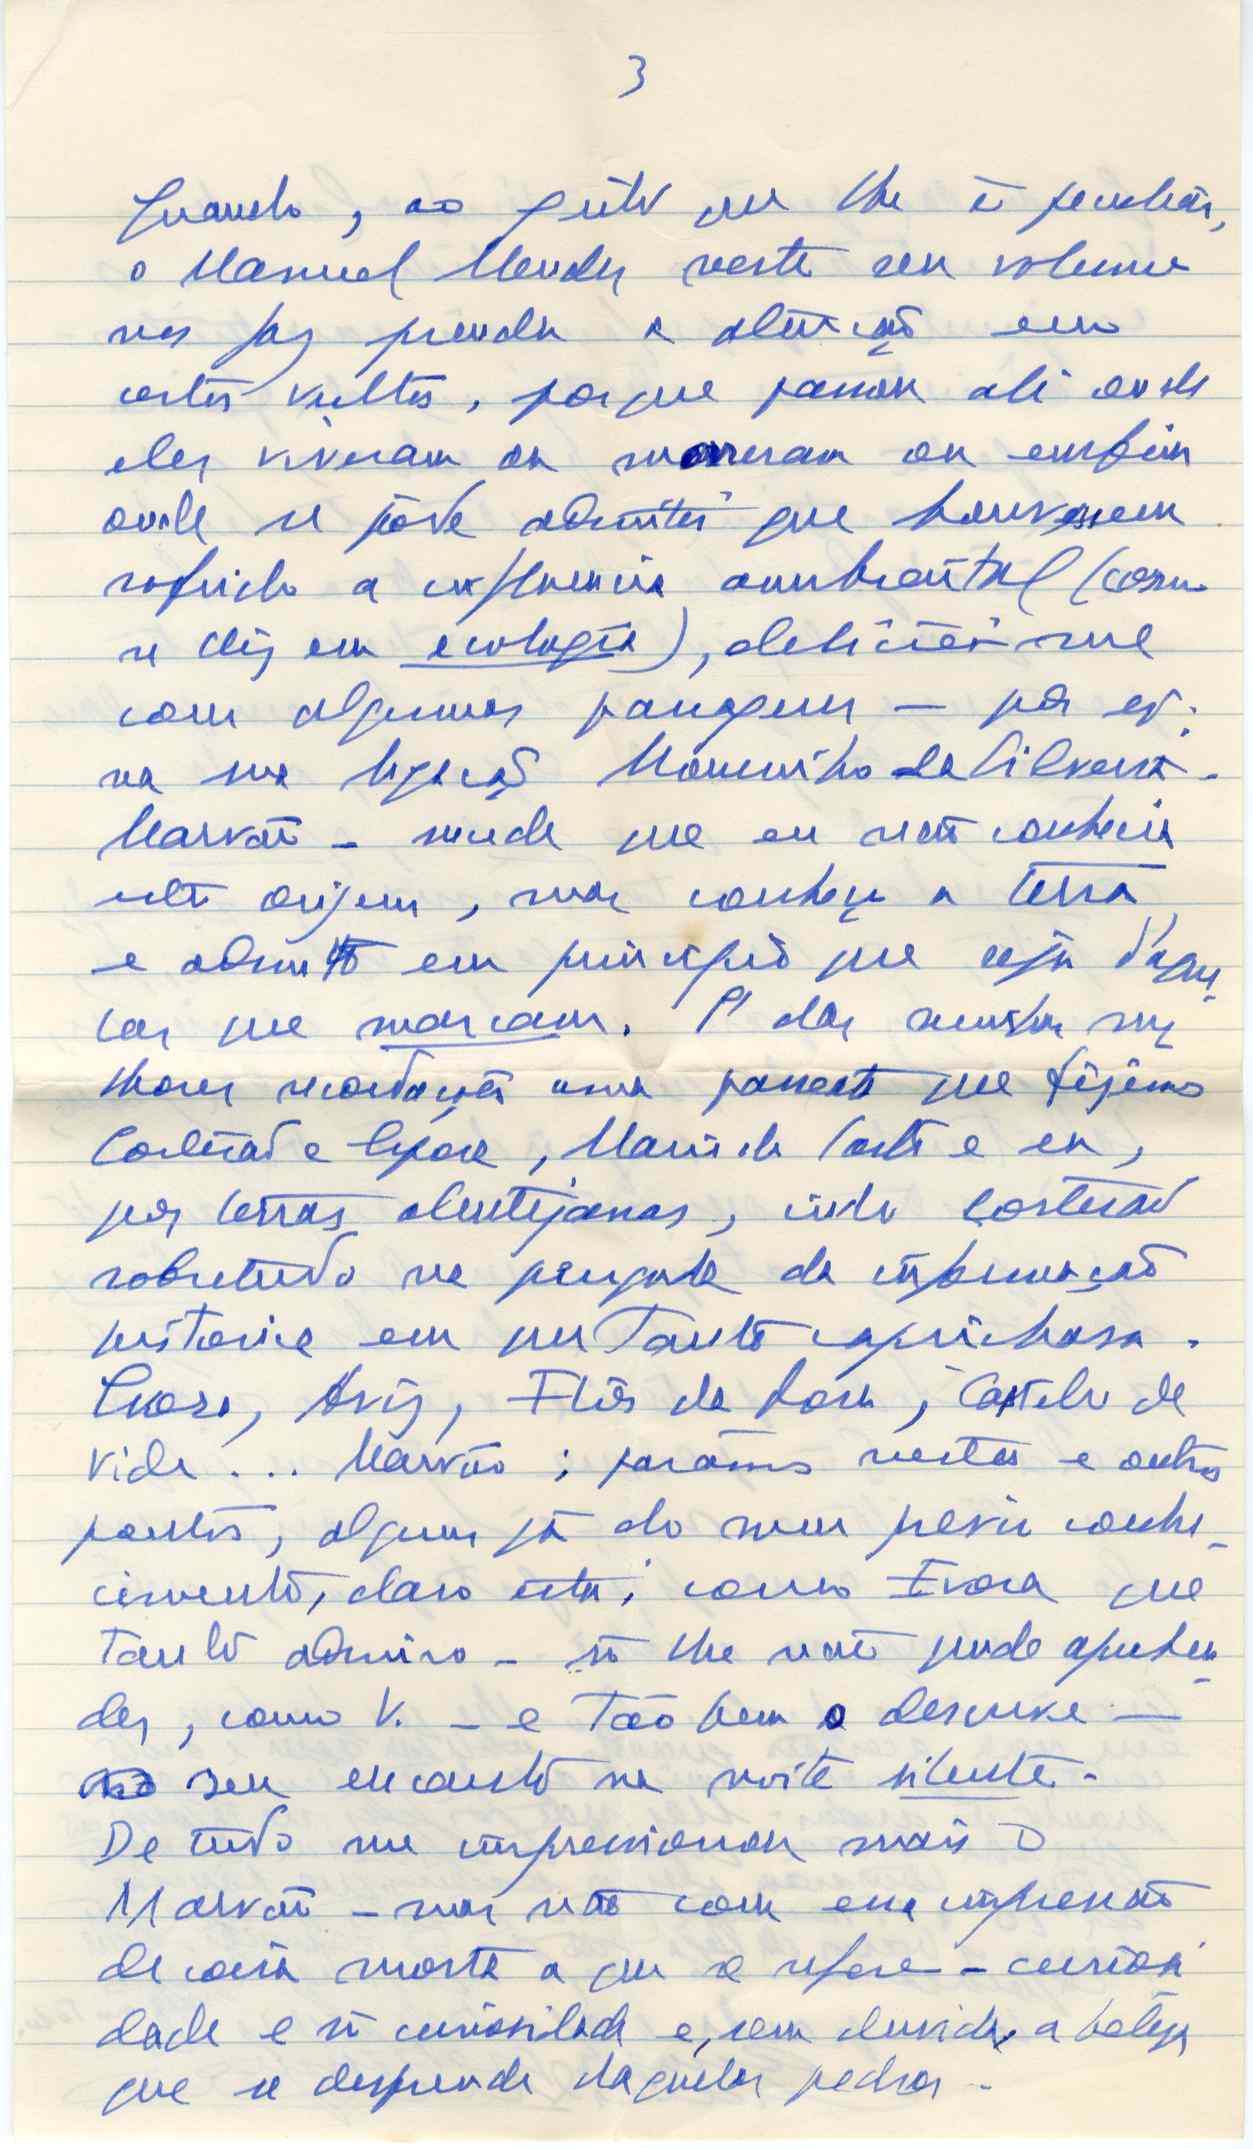 3
Quando, ao jeito que lhe é peculiar,
o Manuel Mendes neste seu volume
nos faz prender a atenção em
certos vultos, porque passou ali onde
eles viveram ou morreram ou enfim
onde se pode admitir que houvessem
sofrido a influencia ambiental (como
se diz em ecologia), deliciei-me
com algumas passagens — por ex:
na sua ligação Mousinho da Silveira-
Marvão – sucede que eu não conhecia
esta origem, mas conheço a terra
e admito em principio que seja d'aque
las que marcam. É das minhas me
lhores recordações uma passeata que fizemos
Cortesão e Esposa, Mario de Castro e eu,
por terras alentejanas, indo Cortesão
sobretudo na pesquisa da informação
historica em que tanto caprichava.
Evora, Aviz, Flôr da Rosa, Castelo de
Vide ... Marvão ; parámos nestes e outros
pontos, alguns já do meu prévio conhe-
cimento, claro está, como Evora que
tanto admiro – só lhe não pude aprehen-
der, como V. – e tão bem o descreve —
seu encanto na noite silente.
De tudo me impressionou mais o
Marvão – mas não com essa impressão
de coisa morta a que se refere – curiosi
dade e só curiosidade e, sem duvida, a beleza
que se desprende daquelas pedras.